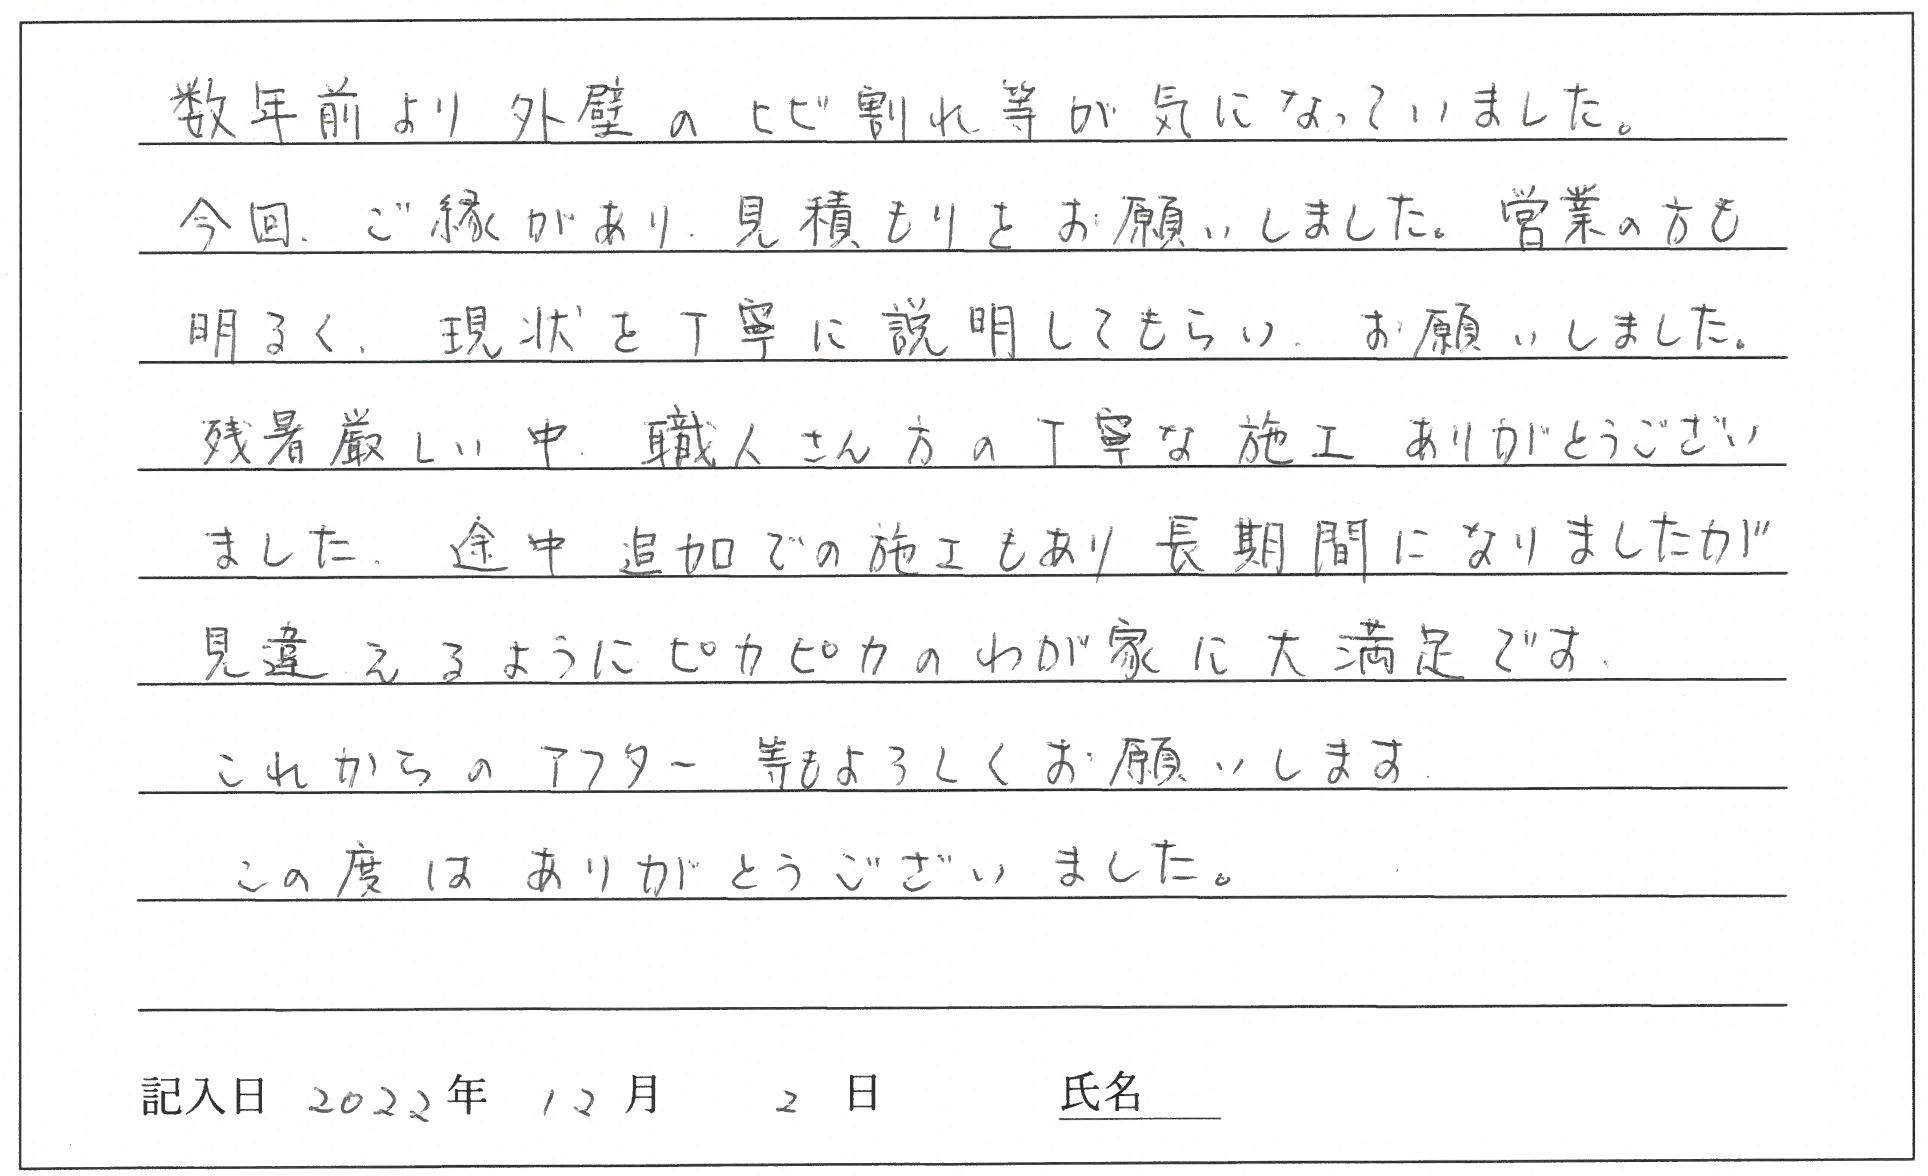 数年前より外壁のヒビ割れ等が気になっていました。
今回、ご縁があり、見積もりをお願いしました。営業の方も
明るく、現状を丁寧に説明してもらい、お願いしました。
残暑厳しい中、職人さん方の丁寧な施工ありがとうござい
ました。途中追加での施工もあり長期間になりましたが
見違えるようにピカピカのわが家に大満足です。
これからのアフター等もよろしくお願いします。
この度はありがとうございました。
記入日 2022年 12月 2日 氏名